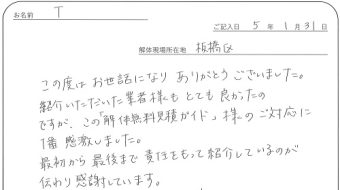 お名前 T
ご記入日 5年 1月31日
解体現場所在地 板橋区
この度は お世話になり ありがとう ございました。
紹介いただいた業者様も とても良かったの
ですが、この「解体無料見積ガイド」様の ご対応に
1番 感激しました。
最初から最後まで 責任をもって紹介しているのが
伝わり感謝しています。